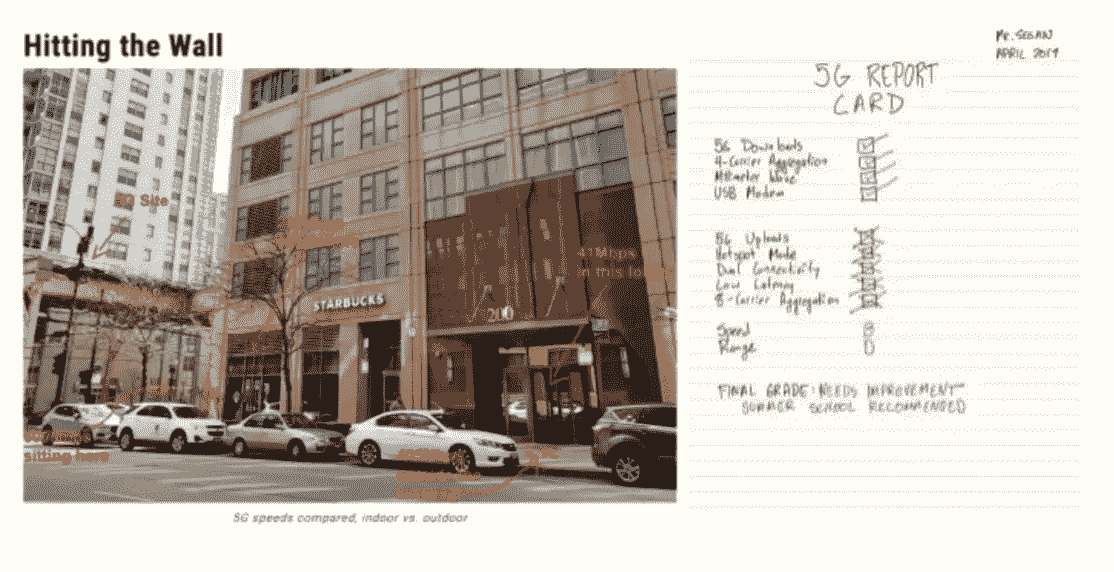 Hitting the Wall
5G Site
STARBUCKS
41Mbps
in this lo
200
sitting here
5G speeds compared, indoor vs. outdoor
Mr. SEGAN
APRIL 2019
5G REPORT
CARD
5G Downloads
4-Carrier Aggregation
Millimeter Wave
USB Modem
5G Uploads
Hotspot Mode
Dual Connectivity
Low Latency
8-Carrier Aggregation
Speed
Range
FINAL GRADE: NEEDS IMPROVEMENT
SUMMER SCHOOL RECOMMENDED